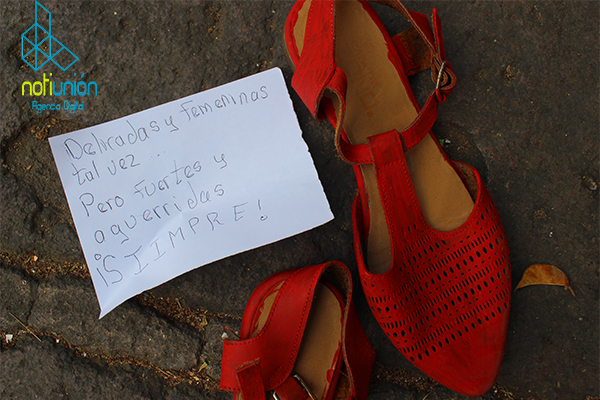 notiunión
Agencia Digital
Delicadas y femeninas
tal vez..
Pero fuertes y
aguerridas
¡SIIMPRE!